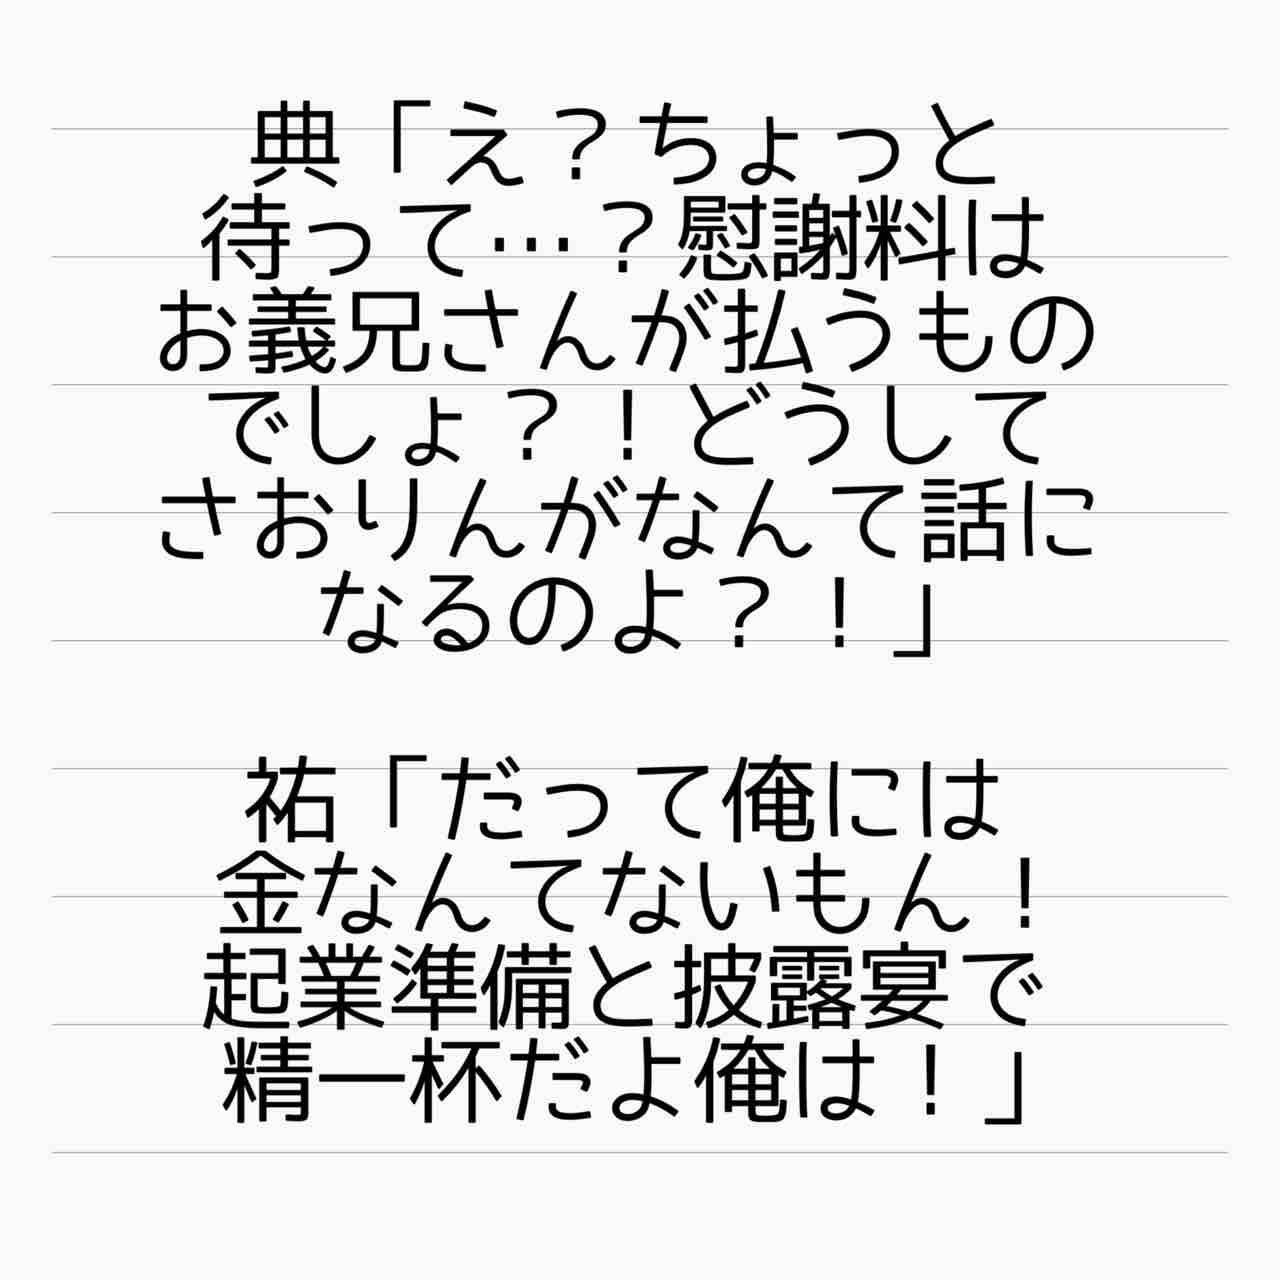 典「え？ちょっと
待って…？慰謝料は
お義兄さんが払うもの
でしょ？！どうして
さおりんがなんて話に
なるのよ？！」
祐「だって俺には
金なんてないもん！
起業準備と披露宴で
精一杯だよ俺は！」